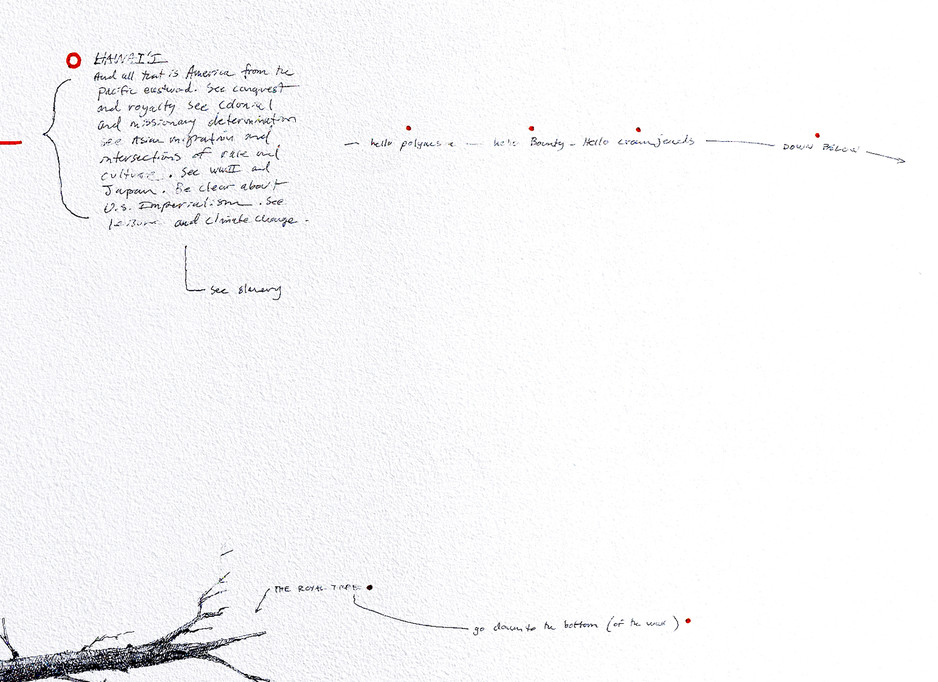 HAWAI'I
And all that is America from the
pacific eastward. See conquest
and royalty see colonial
and missionary determination
see Asian migration and
intersections of race and
culture. See WWII and
Japan. Be clear about
U.S. Imperialism. See
leisure and climate change.
see slavery
— hello polynesia — hello Bounty — Hello
DOWN BELOW
THE ROYAL
go down to the bottom (of the )